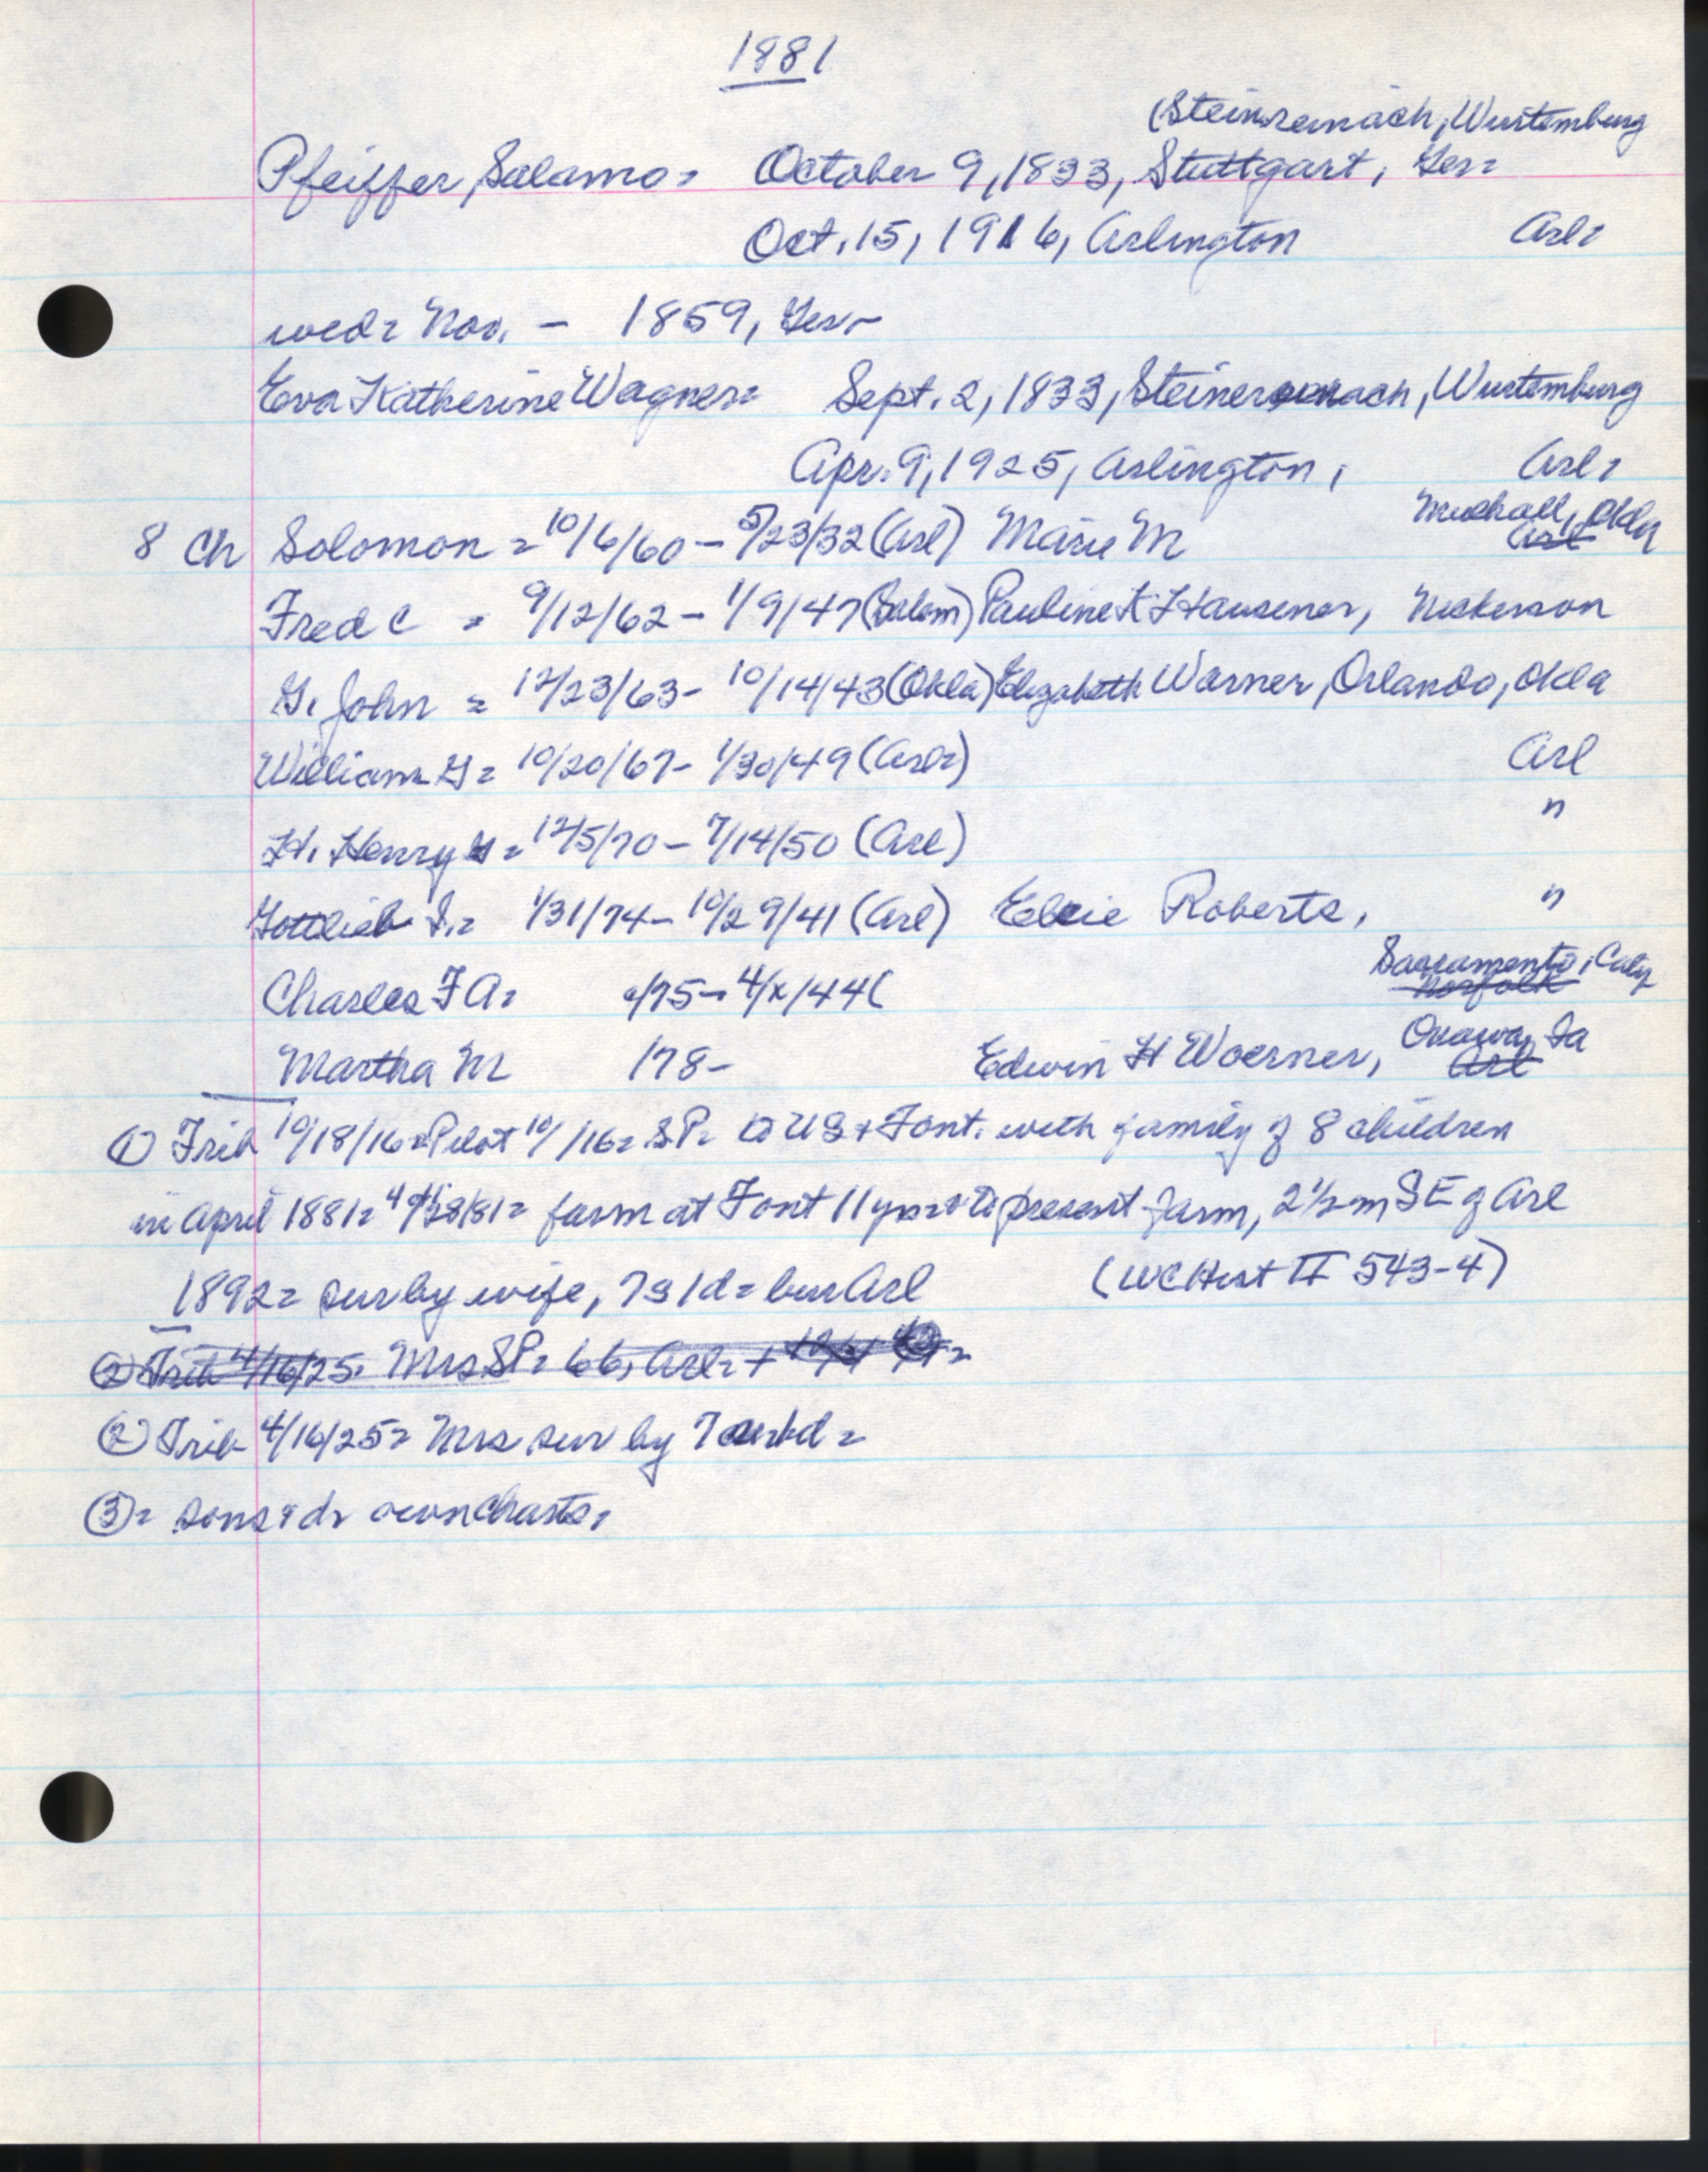 1881
(Steinreinach, Wurtemburg
Pfeiffer, Salamo= October 9, 1833, Stuttgart, Ger=
Oct. 15, 1916, Arlington Arl=
wed= Nov. - 1859, Ger-
Eva Katherine Wagner= Sept. 2, 1833, Steinerenach, Wurtemburg
Apr. 9, 1925, Arlington, Arl=
8 Ch Solomon = 10/6/60 - 5/23/32 (Arl) Marie M Mulhall, Okla Arl
Fred C = 9/12/62 - 1/9/47 (Salem) Pauline K Hausener, Nickerson
G. John = 12/23/63 - 10/14/43 (Okla) Elizabeth Warner, Orlando, Okla
William G= 10/20/67 - 1/30/49 (Arl=) Arl
H. Henry = 12/5/70 - 7/14/50 (Arl) "
Gottlieb J.= 1/31/74 - 10/29/41 (Arl) Elsie Roberts, "
Charles F A= /75 - 4/x/44 ( Sacramento, Calif Norfolk
Martha M /78 - Edwin H Woerner, Onawa, Ia Arl
① Trib 10/18/16 & Pilot 10/ /16= SP= to US & Font. with family of 8 children
in April 1881= 4/28/81= farm at Font 11 yrs= to present farm, 2½ m SE of Arl
1892= sur by wife, 7s 1d= bur Arl (WC Hist II 543-4)
② Trib 4/16/25= Mrs SP= 66, Arl= +
② Trib 4/16/25= Mrs sur by 7 d=
③= sons & d= own charts=